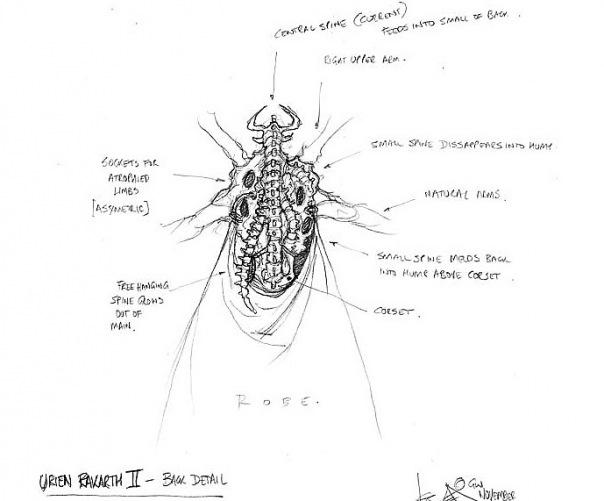 CENTRAL SPINE (CURRENT)
FEEDS INTO SMALL OF BACK.
RIGHT UPPER ARM.
SMALL SPINE DISSAPPEARS INTO HUMP
SOCKETS FOR
ATROPHIED
LIMBS
[ASYMETRIC]
NATURAL ARMS.
SMALL SPINE MELDS BACK
INTO HUMP ABOVE CORSET.
FREE HANGING
SPINE GROWS
OUT OF
MAIN.
CORSET.
ROBE.
URIEN RAKARTH II - BACK DETAIL
© GW
NOVEMBER